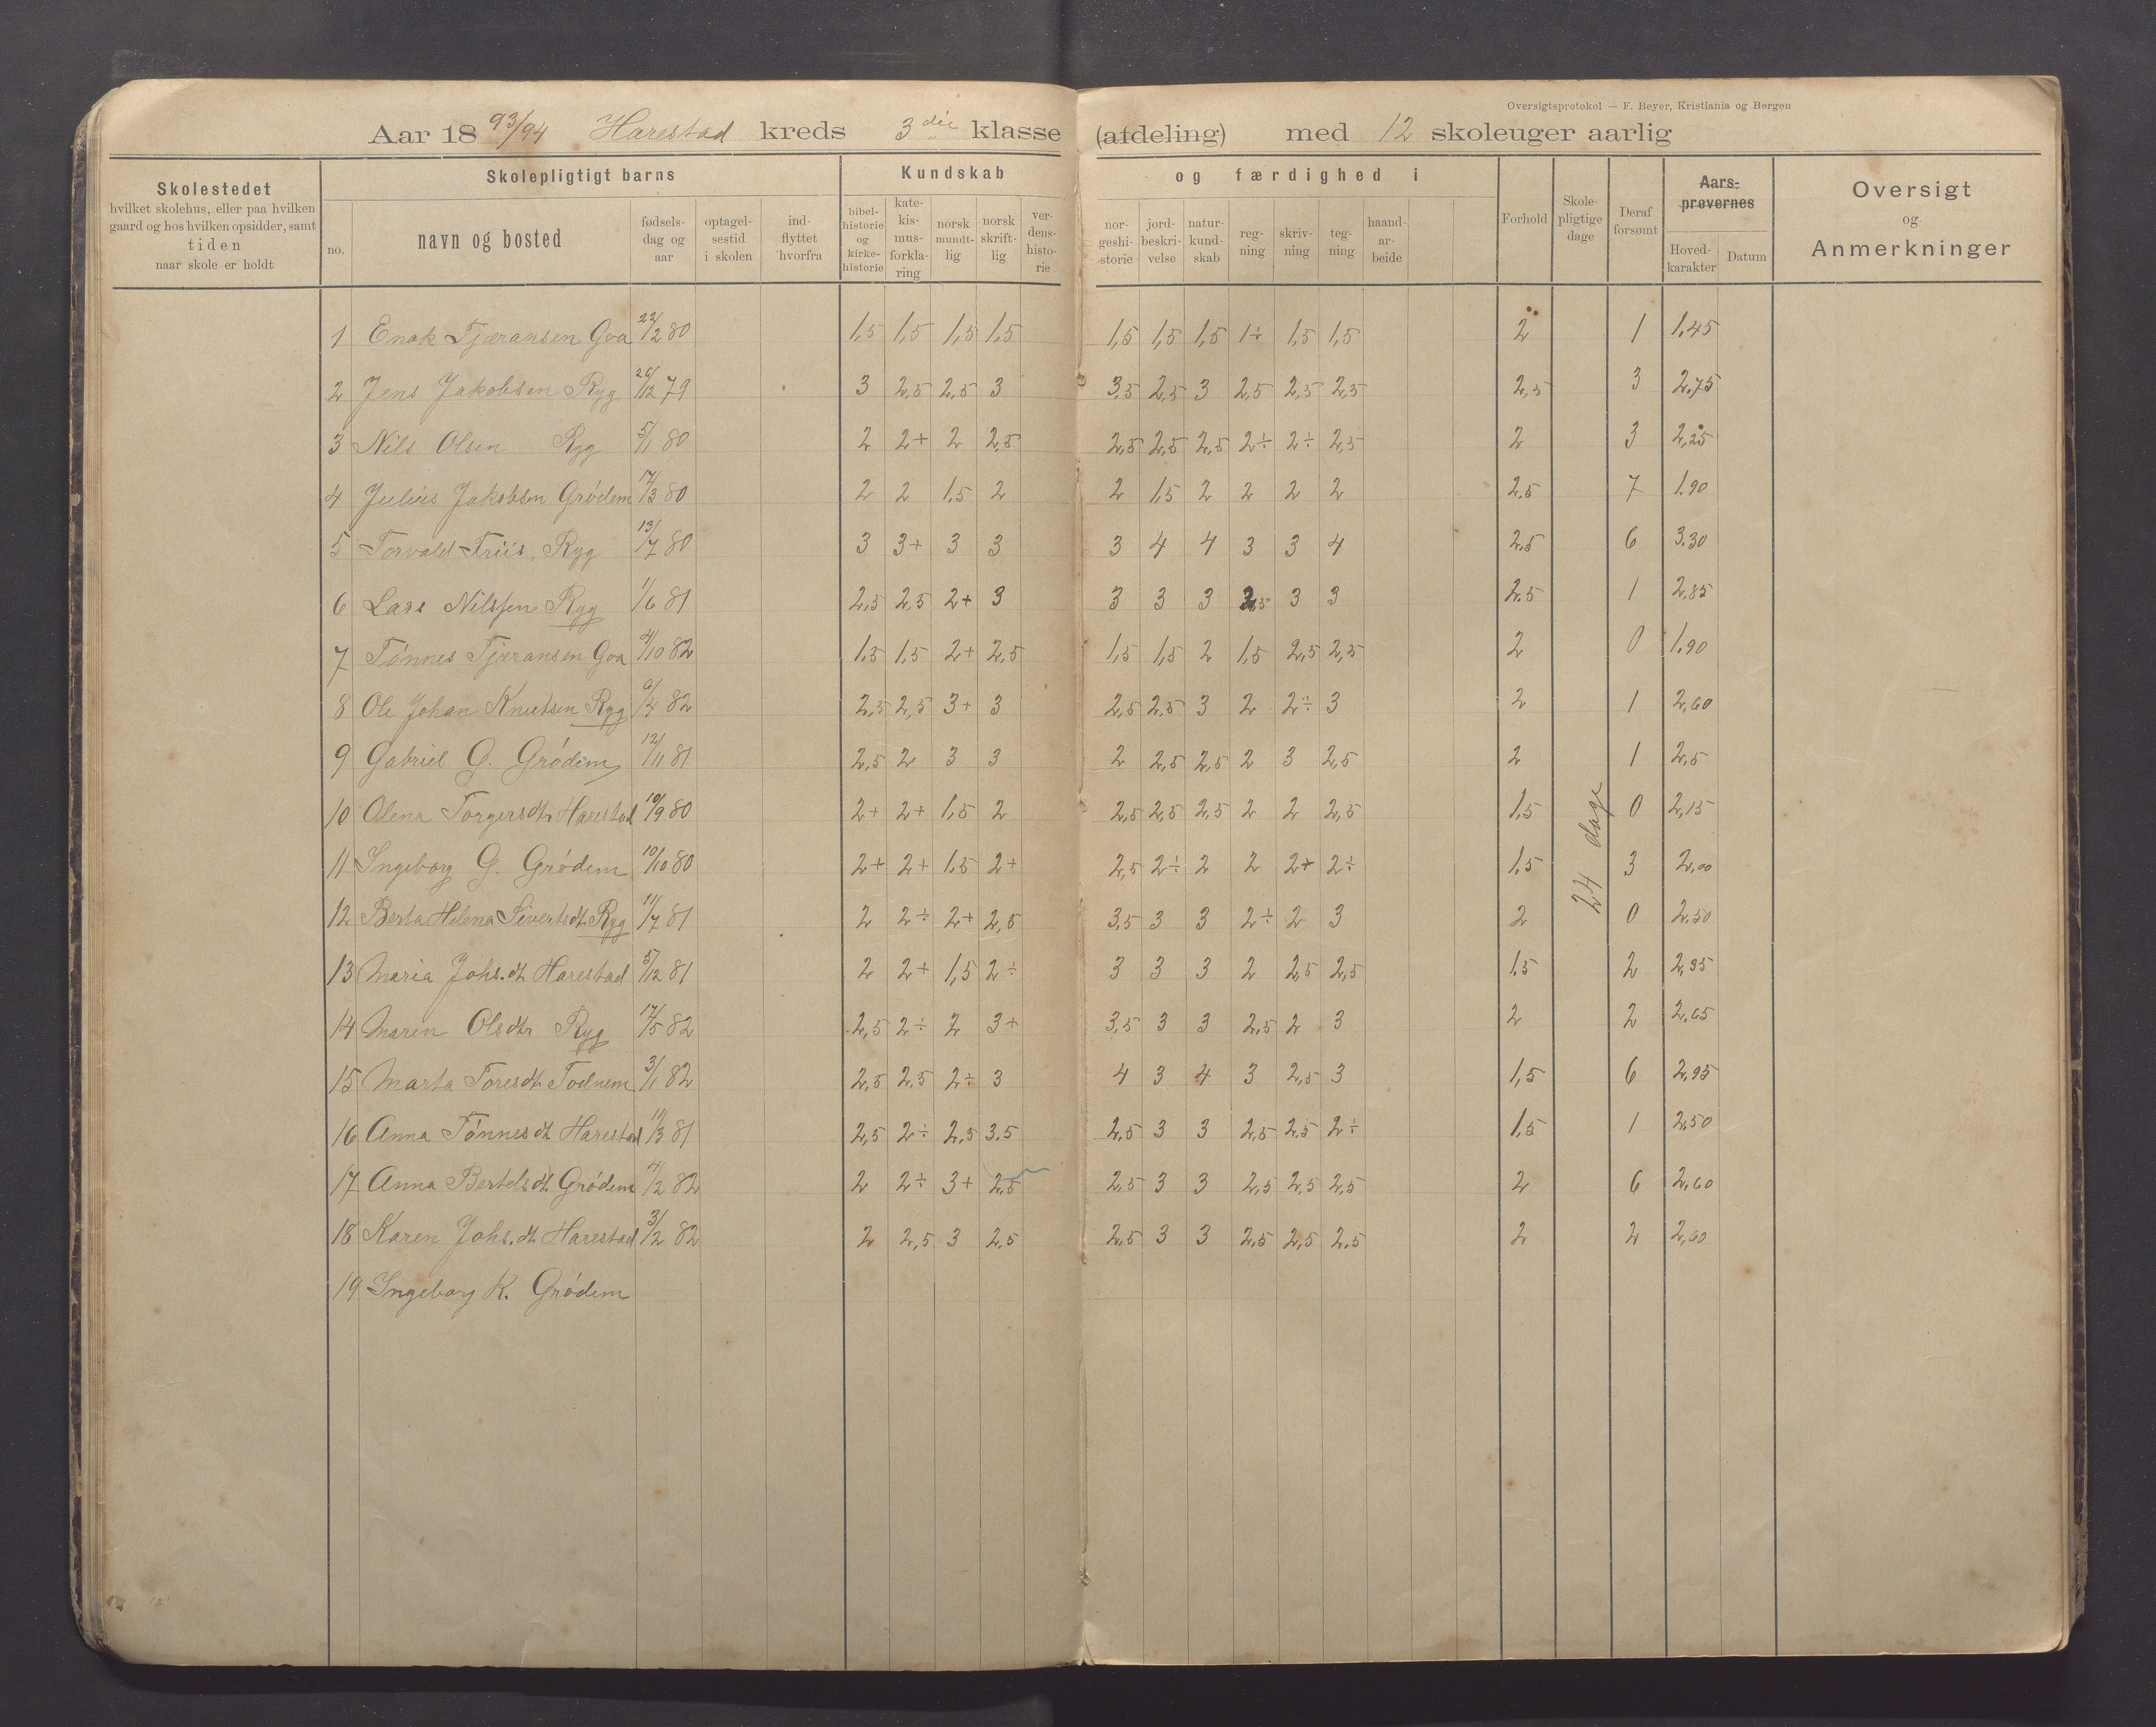 Oversigtsprotokol — F. Beyer, Kristiania og Bergen
Aar 1893/94 Harestad kreds 3die klasse (afdeling) med 12 skoleuger aarlig
Skolestedet hvilket skolehus, eller paa hvilken gaard og hos hvilken opsidder, samt tiden naar skole er holdt
Skolepligtigt barns
no. navn og bosted fødselsdag og aar optagelsestid i skolen indflyttet hvorfra
Kundskab og færdighed i
bibelhistorie og kirkehistorie katekismusforklaring norsk mundtlig norsk skriftlig verdenshistorie norgeshistorie jordbeskrivelse naturkundskab regning skrivning tegning haandarbeide
Forhold Skolepligtige dage Deraf forsømt Aarsprøvernes Hovedkarakter Datum
Oversigt og Anmerkninger
1 Enok Tjæransen Goa 22/2 80 1,5 1,5 1,5 1,5 1,5 1,5 1,5 1÷ 1,5 1,5 2 1 1,45
2 Jens Jakobsen Ryg 26/12 79 3 2,5 2,5 3 3,5 2,5 3 2,5 2,5 2,5 2,5 3 2,75
3 Nils Olsen Ryg 5/11 80 2 2+ 2 2,5 2,5 2,5 2,5 2÷ 2÷ 2,5 2 3 2,25
4 Julius Jakobsen Grødem 17/3 80 2 2 1,5 2 2 1,5 2 2 2 2 2,5 7 1.90
5 Torvald Friis, Ryg 13/7 80 3 3+ 3 3 3 4 4 3 3 4 2,5 6 3.30
6 Lars Nilssen Ryg 1/6 81 2,5 2,5 2+ 3 3 3 3 2,5 3 3 2.5 1 2,85
7 Tønnes Tjæransen Goa 4/10 82 1,5 1,5 2+ 2,5 1,5 1,5 2 1,5 2,5 2,5 2 0 1.90
8 Ole Johan Knutsen Ryg 82 2,5 2,5 3+ 3 2,5 2,5 3 2 2÷ 3 2 1 2,60
9 Gabriel G. Grødem 12/11 81 2,5 2 3 3 2 2,5 2,5 2 3 2,5 2 1 2,5
10 Olena Torgersdtr Harestad 10/9 80 2+ 2+ 1,5 2 2,5 2,5 2,5 2 2 2,5 1,5 24 dage 0 2,15
11 Ingeborg G. Grødem 10/10 80 2+ 2+ 1,5 2+ 2,5 2÷ 2 2 2+ 2÷ 1,5 3 2,00
12 Berta Helena Sivertsdt. Ryg 11/7 81 2 2÷ 2+ 2,5 3,5 3 3 2÷ 2 3 2 0 2.50
13 Maria Johs.dt Harestad 5/12 81 2 2+ 1,5 2÷ 3 3 3 2 2,5 2,5 1.5 2 2,35
14 Maren Olsdtr Ryg 17/5 82 2,5 2÷ 2 3+ 3,5 3 3 2,5 2 3 2 2 2,65
15 Marta Toresdt. Todnem 3/1 82 2,5 2,5 2÷ 3 4 3 4 3 2,5 3 1,5 6 2,95
16 Anna Tønnesdt Harestad 11/3 81 2,5 2÷ 2,5 3.5 2,5 3 3 2,5 2,5 2÷ 1,5 1 2,50
17 Anna Bertelsdt. Grødem 4/2 82 2 2÷ 3+ 2,5 2,5 3 3 2,5 2,5 2,5 2 6 2,60
18 Karen Johs.dt. Harestad 3/2 82 2 2,5 3 2,5 2,5 3 3 2,5 2,5 2,5 2 2 2,60
19 Ingeborg K. Grødem